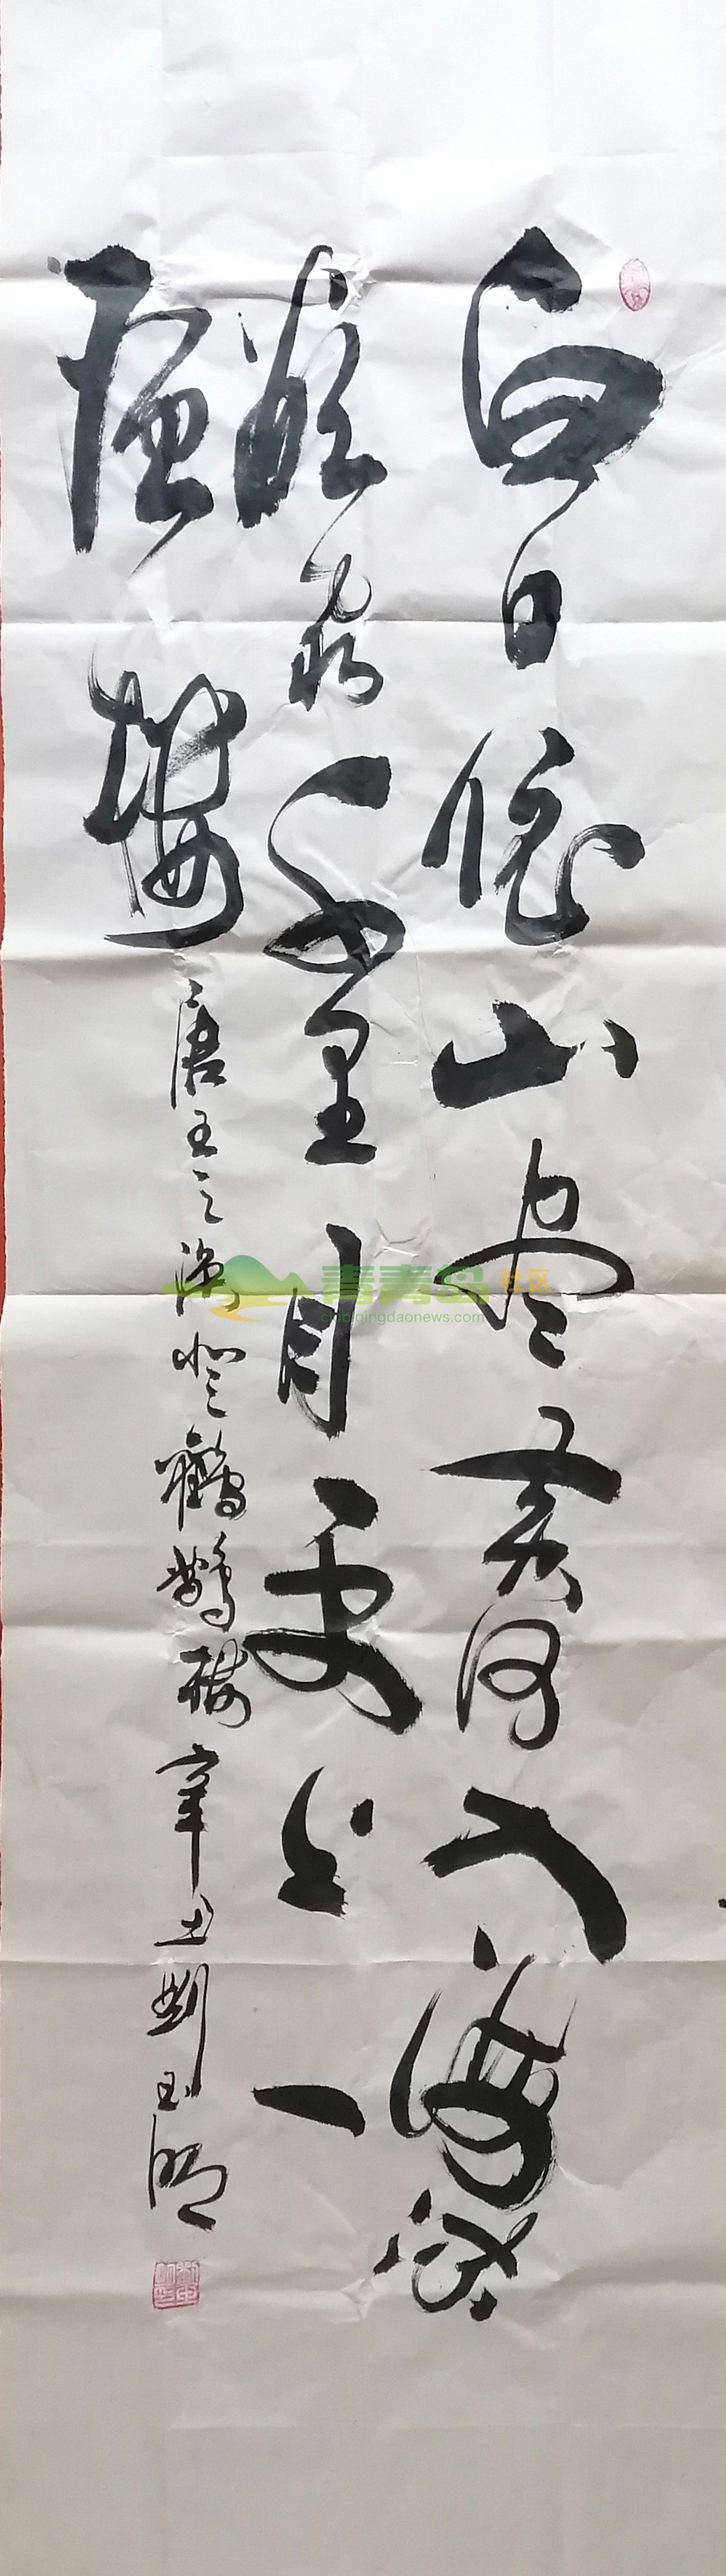 白日依山尽黄河入海流
欲穷千里目更上一
層樓
唐王之涣登鹳鹊楼辛丑刘玉明
青青岛社区
club.qingdaonews.com